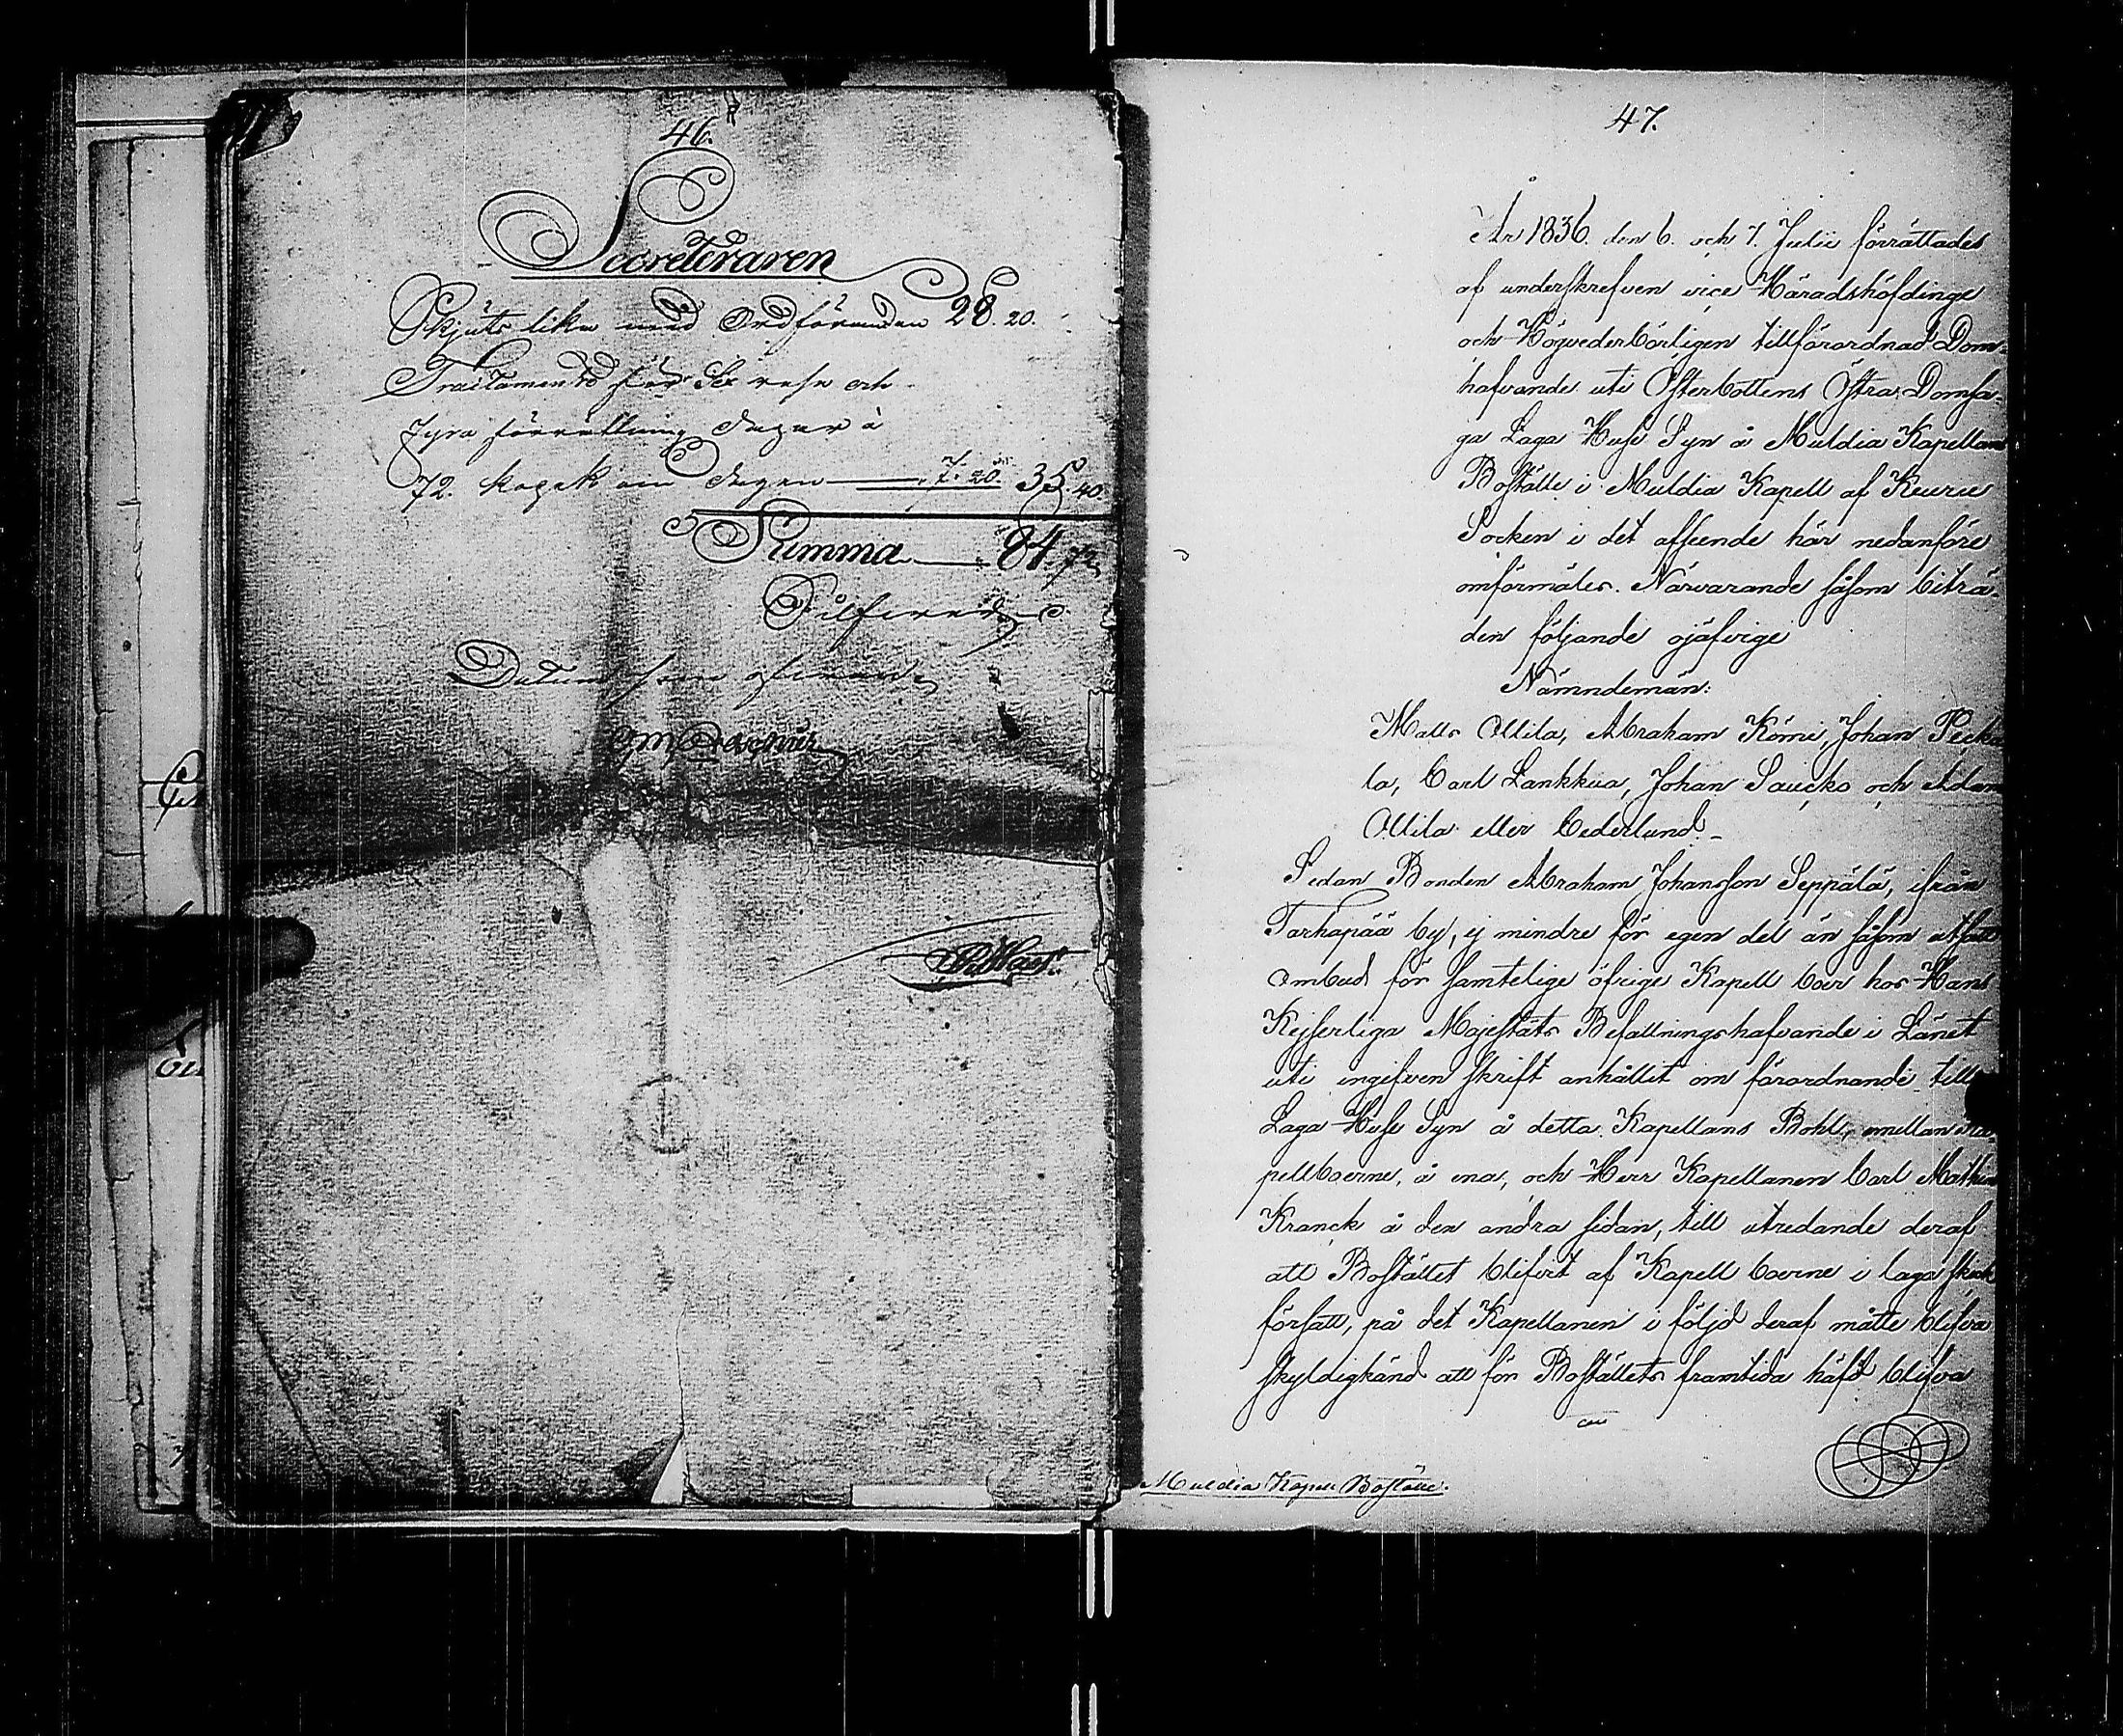 46.
Secreteraren
Skjuts lika med Ordföranden 28. 20.
Tractamente för Sex rese och
fyra förrättnings dagar à
72. kopek om dagen 7. 20. 35. 40.
Summa 84. 72
Silfver
Datum som ofvan
47.
År 1836. den 6. och 7. Julii förrättades
af underskrefven vice Häradshöfdinge
och Högvederbörligen tillförordnad Dom-
hafvande uti Österbottens Östra Domsa-
ga Laga Huse Syn å Muldia Kapellans
Boställe i Muldia Kapell af Keuru
Socken i det afseende här nedanföre
omförmäles. Närvarande såsom biträ-
den följande ojäfvige
Nämndemän:
Matts Ollila, Abraham Kömi, Johan Pecka
la, Carl Lankkua, Johan Saucko och Adam
Ollila eller Cederlund.
Sedan Bonden Abraham Johansson Seppälä, ifrån
Tarhapää by, ej mindre för egen del än såsom utsedt
ombud för samtelige öfrige Kapell boer hos Hans
Kejserliga Majestäts Befallningshafvande i Länet
uti ingifven skrift anhållit om förordnande till
Laga Huse Syn å detta Kapellans Bohl, emellan Ka
pellboerne, å ena, och Herr Kapellanen Carl Mathias
Kranck å den andra sidan, till utredande deraf
att Bostället blifvit af Kapell boerne i laga skick
försatt, på det Kapellanen i följd deraf måtte blifva
skyldigkänd att för Boställets framtida häfd blifva
Muldia Kapell Boställe.